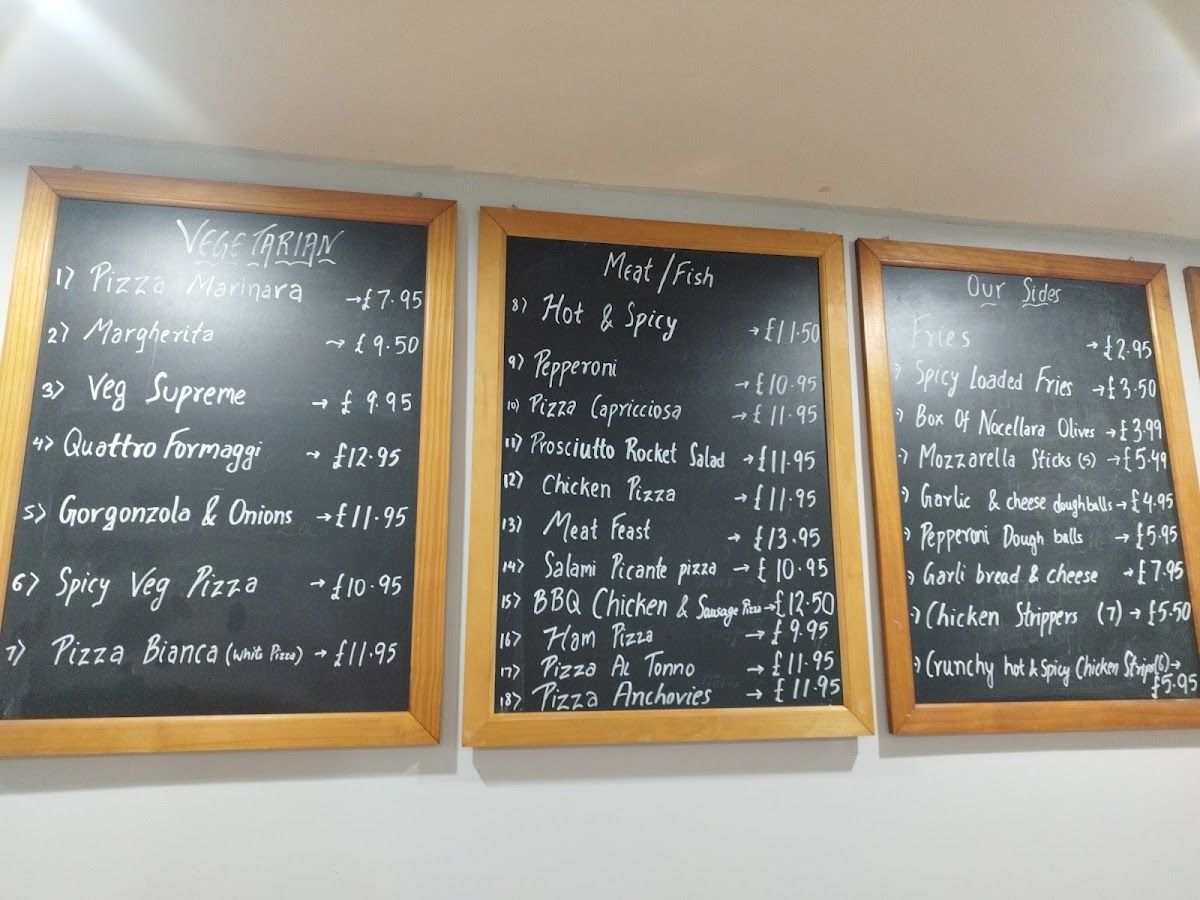 VEGETARIAN
1) Pizza Marinara →£7.95
2) Margherita → £9.50
3) Veg Supreme → £9.95
4) Quattro Formaggi → £12.95
5) Gorgonzola & Onions →£11.95
6) Spicy Veg Pizza →£10.95
7) Pizza Bianca (White Pizza) →£11.95
Meat/Fish
8) Hot & Spicy →£11.50
9) Pepperoni →£10.95
10) Pizza Capricciosa →£11.95
11) Prosciutto Rocket Salad →£11.95
12) Chicken Pizza →£11.95
13) Meat Feast → £13.95
14) Salami Picante pizza → £10.95
15) BBQ Chicken & Sausage Pizza →£12.50
16) Ham Pizza → £9.95
17) Pizza Al Tonno → £11.95
18) Pizza Anchovies → £11.95
Our Sides
Fries →£2.95
) Spicy Loaded Fries →£3.50
) Box Of Nocellara Olives →£3.99
) Mozzarella Sticks (5) →£5.49
) Garlic & cheese doughballs →£4.95
) Pepperoni Dough balls →£5.95
) Garli bread & cheese →£7.95
) Chicken Strippers (7) → £5.50
) Crunchy hot & Spicy Chicken Strips(6)→
£5.95